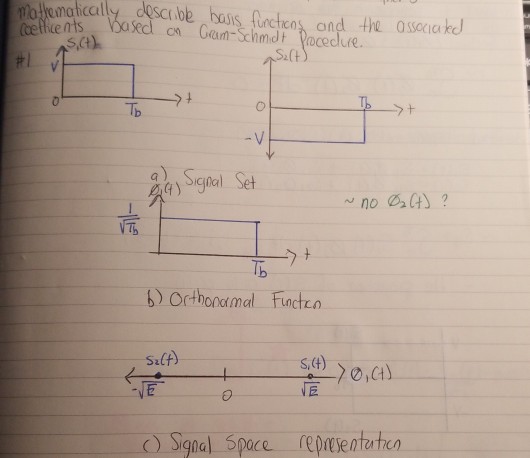 mathematically describe basis functions and the associated
coefficients based on Gram-Schmidt Procedure.
#1
S₁(t)
V
0
Tb
t
S₂(t)
0
Tb
t
-V
a) Signal Set
Ø₁(t)
1
√Tb
Tb
t
~ no Ø₂(t) ?
b) Orthonormal Function
S₂(t)
S₁(t)
Ø₁(t)
-√E
0
√E
c) Signal Space representation